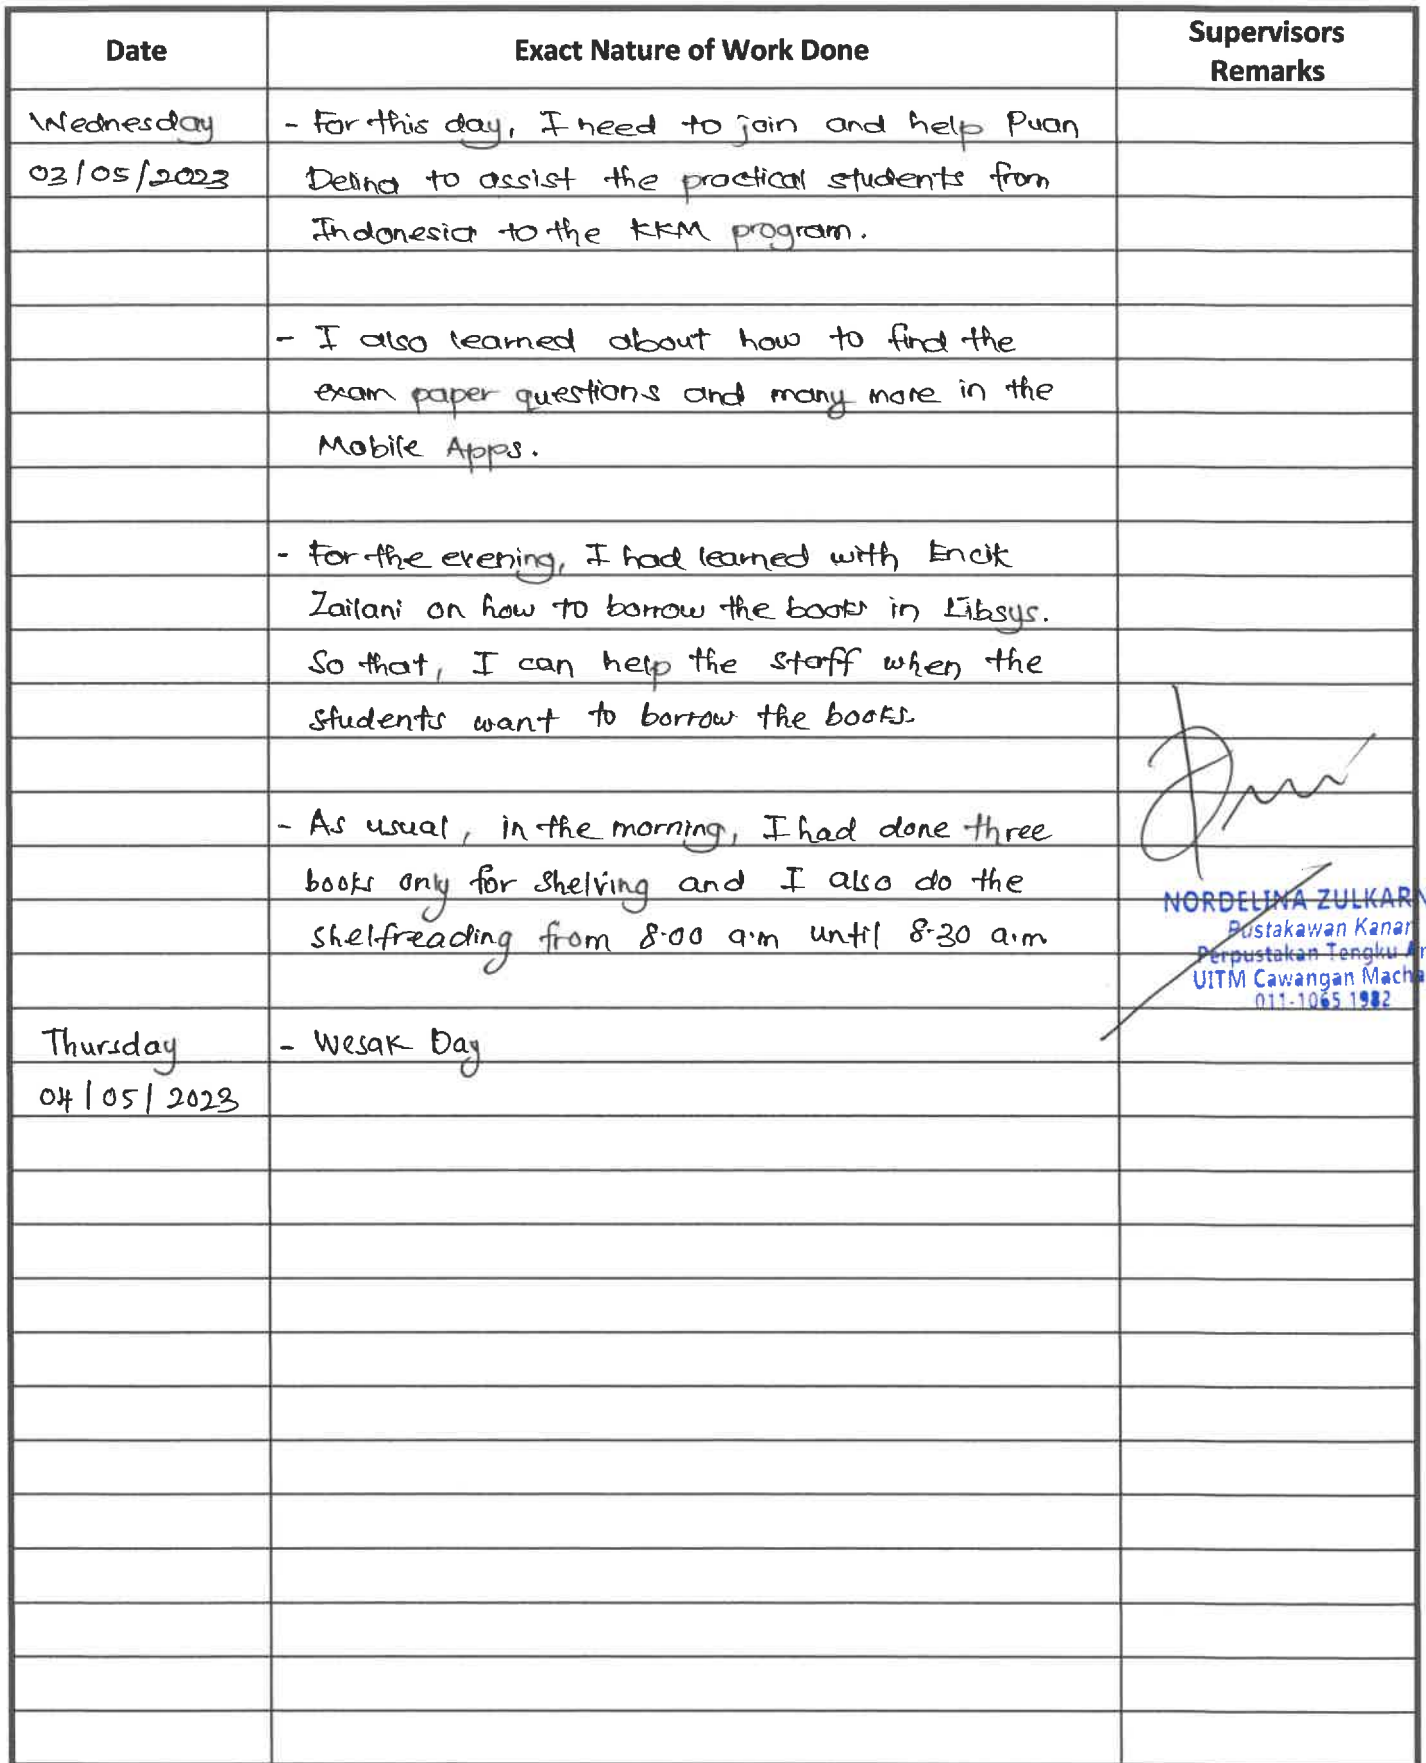 Date Exact Nature of Work Done Supervisors
Remarks
Wednesday - For this day, I need to join and help Puan
03/05/2023 Delina to assist the practical students from
Indonesia to the KKM program.
- I also learned about how to find the
exam paper questions and many more in the
Mobile Apps.
- For the evening, I had learned with Encik
Zailani on how to borrow the books in Libsys.
So that, I can help the staff when the
students want to borrow the books.
- As usual, in the morning, I had done three
books only for shelving and I also do the
shelfreading from 8.00 a.m until 8.30 a.m
NORDELINA ZULKAR
Pustakawan Kanan
Perpustakan Tengku
UITM Cawangan Mach
011-1065 1982
Thursday - Wesak Day
04/05/2023